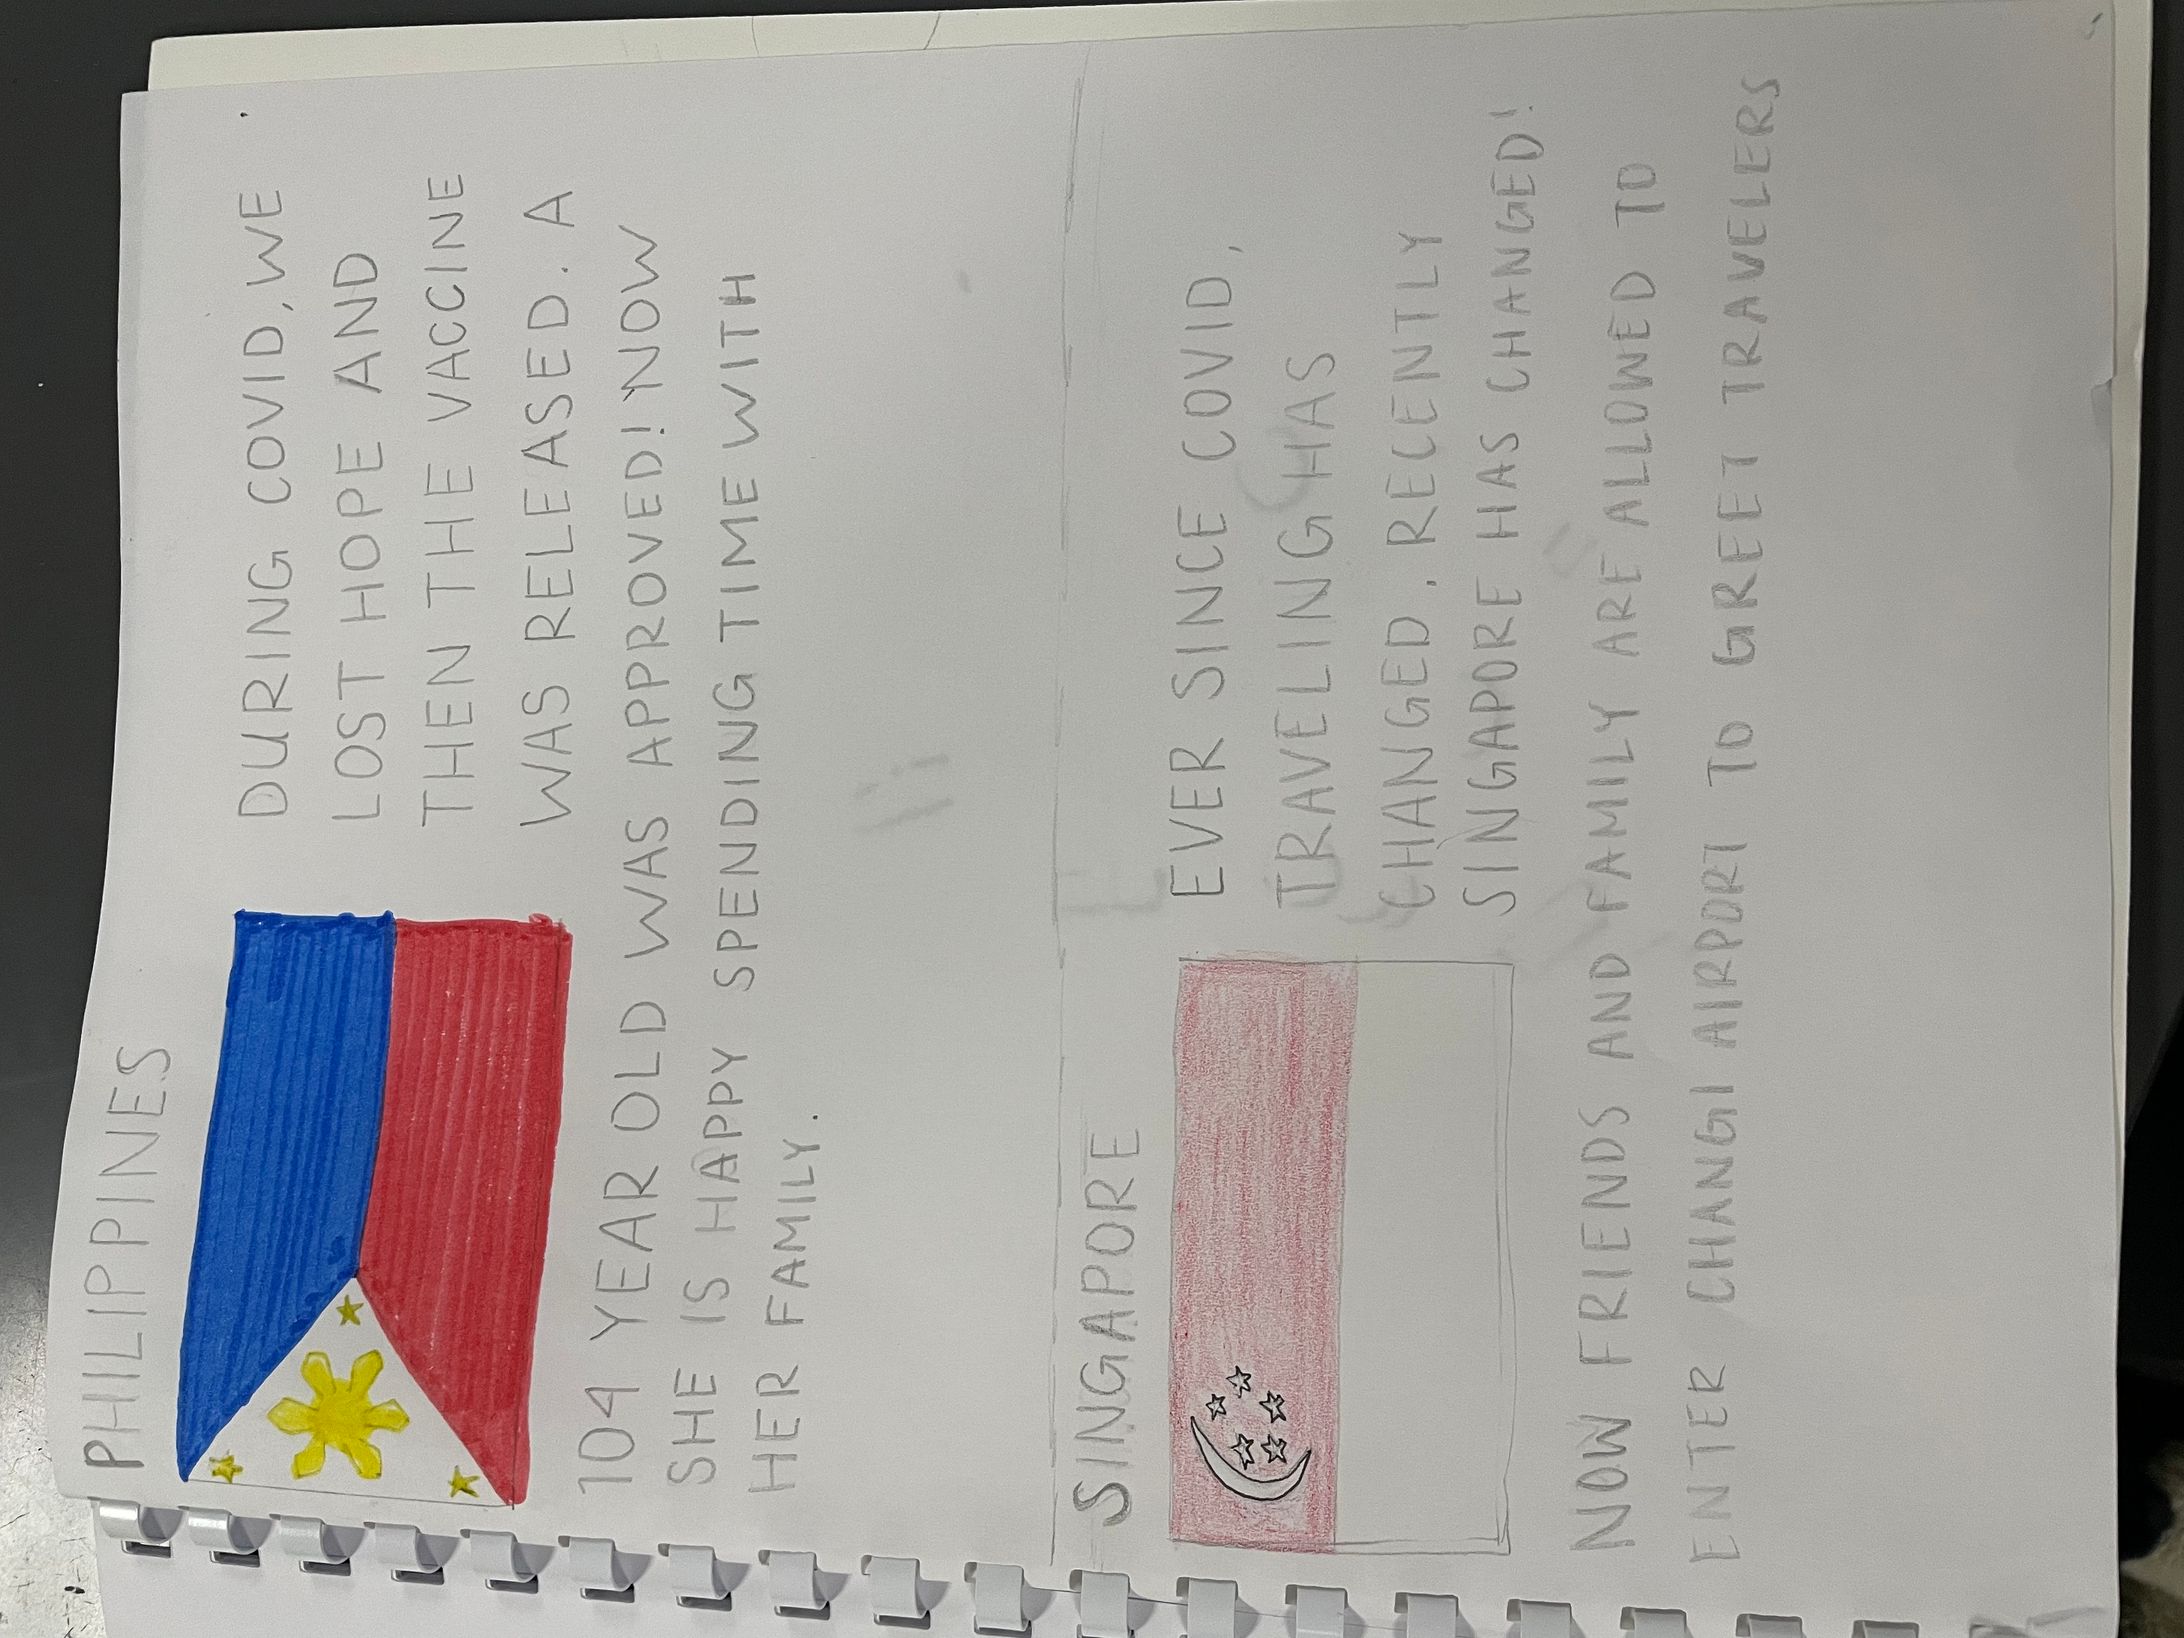 PHILIPPINES
DURING COVID, WE
LOST HOPE AND
THEN THE VACCINE
WAS RELEASED. A
104 YEAR OLD WAS APPROVED! NOW
SHE IS HAPPY SPENDING TIME WITH
HER FAMILY.
SINGAPORE
EVER SINCE COVID,
TRAVELING HAS
CHANGED. RECENTLY
SINGAPORE HAS CHANGED!
NOW FRIENDS AND FAMILY ARE ALLOWED TO
ENTER CHANGI AIRPORT TO GREET TRAVELERS